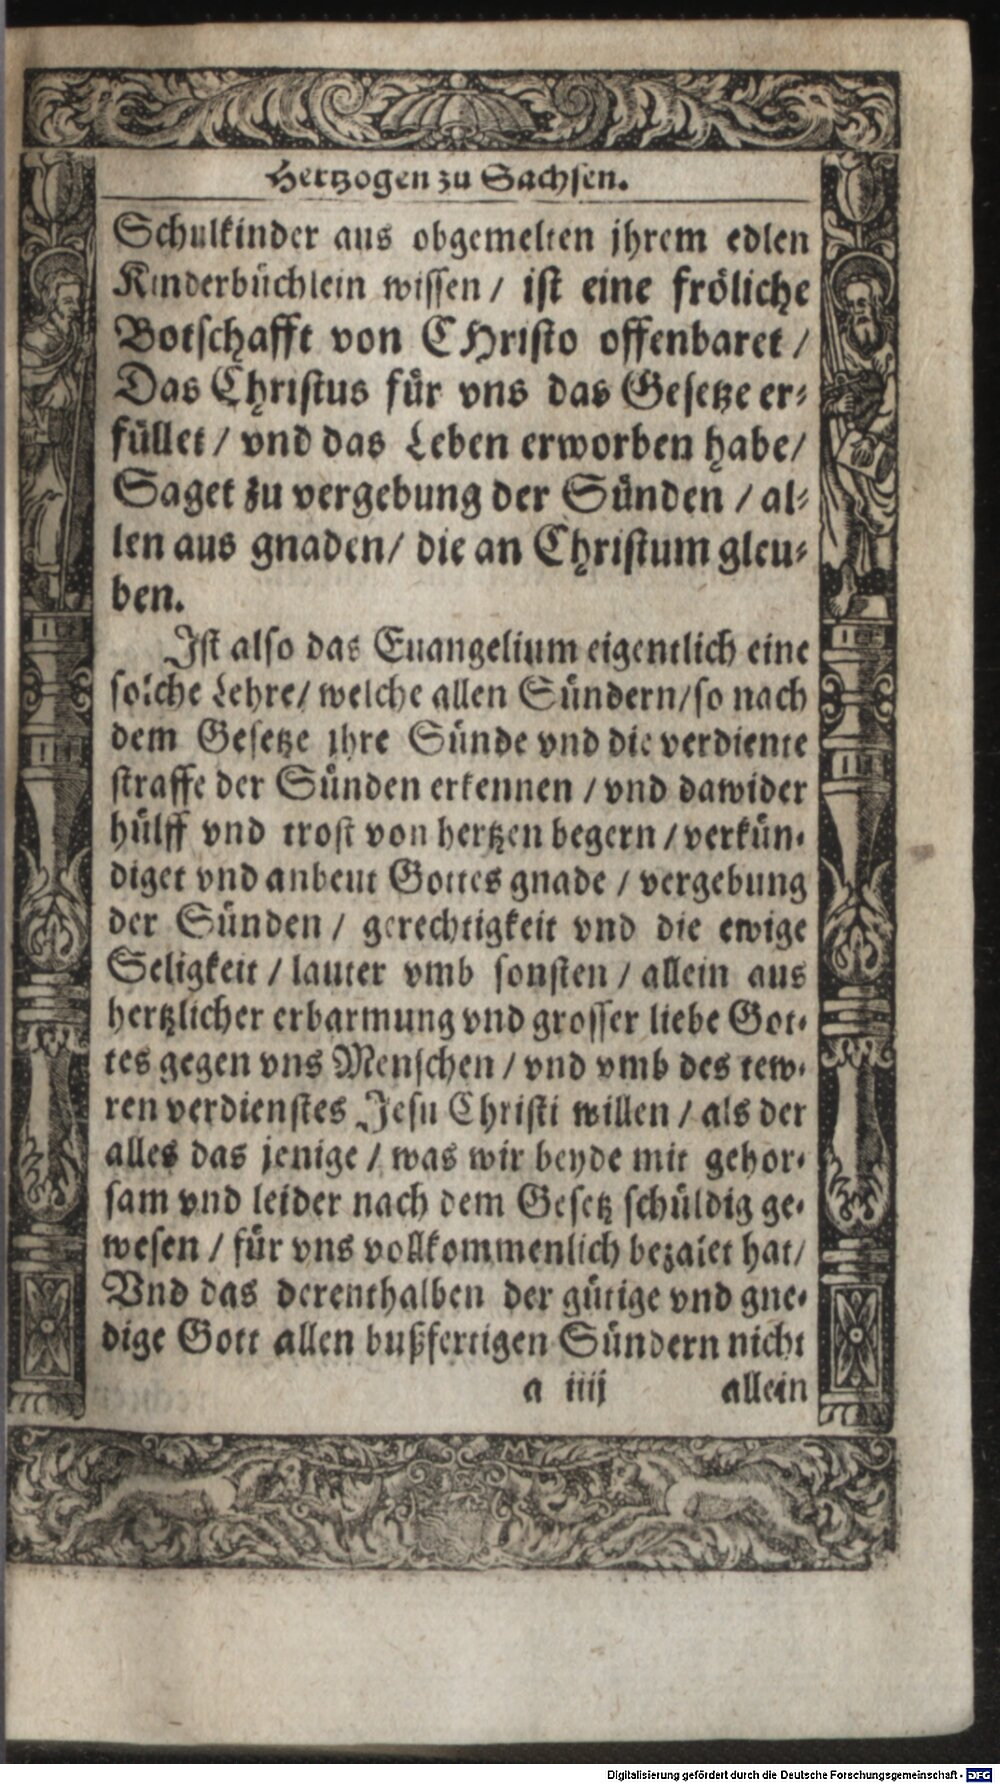 Hertzogen zu Sachsen.
Schulkinder aus obgemelten jhrem edlen
Kinderbüchlein wissen / ist eine fröliche
Botschafft von CHristo offenbaret /
Das Christus für vns das Gesetze er-
füllet / vnd das Leben erworben habe /
Saget zu vergebung der Sünden / al-
len aus gnaden / die an Christum gleu-
ben.
Ist also das Euangelium eigentlich eine
solche Lehre / welche allen Sündern / so nach
dem Gesetze jhre Sünde vnd die verdiente
straffe der Sünden erkennen / vnd dawider
hülff vnd trost von hertzen begern / verkün-
diget vnd anbeut Gottes gnade / vergebung
der Sünden / gerechtigkeit vnd die ewige
Seligkeit / lauter vmb sonsten / allein aus
hertzlicher erbarmung vnd grosser liebe Got-
tes gegen vns Menschen / vnd vmb des tew-
ren verdienstes Jesu Christi willen / als der
alles das jenige / was wir beyde mit gehor-
sam vnd leider nach dem Gesetz schüldig ge-
wesen / für vns vollkommenlich bezalet hat /
Vnd das derenthalben der gütige vnd gne-
dige Gott allen bußfertigen Sündern nicht
a iiij allein
M
Digitalisierung gefördert durch die Deutsche Forschungsgemeinschaft - DFG